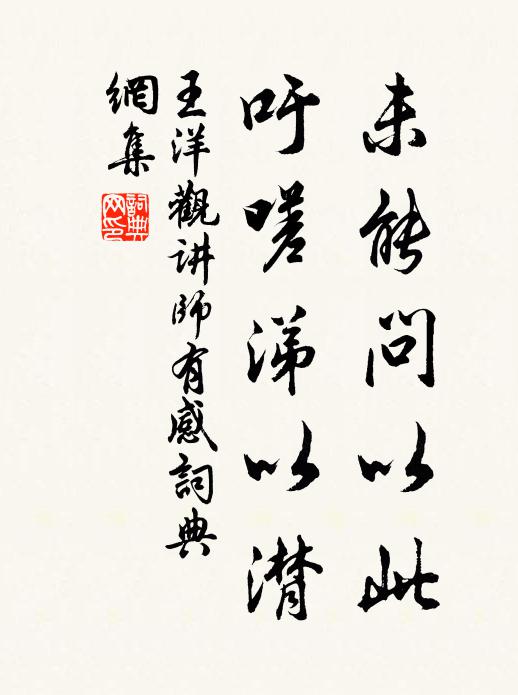 未能问以此
吁嗟涕以潸
王洋觀讲師有感詞典
網集
詞典
网印